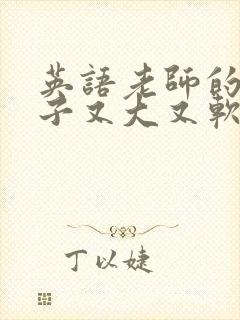 英語老師的
子又大又軟
丁以婕